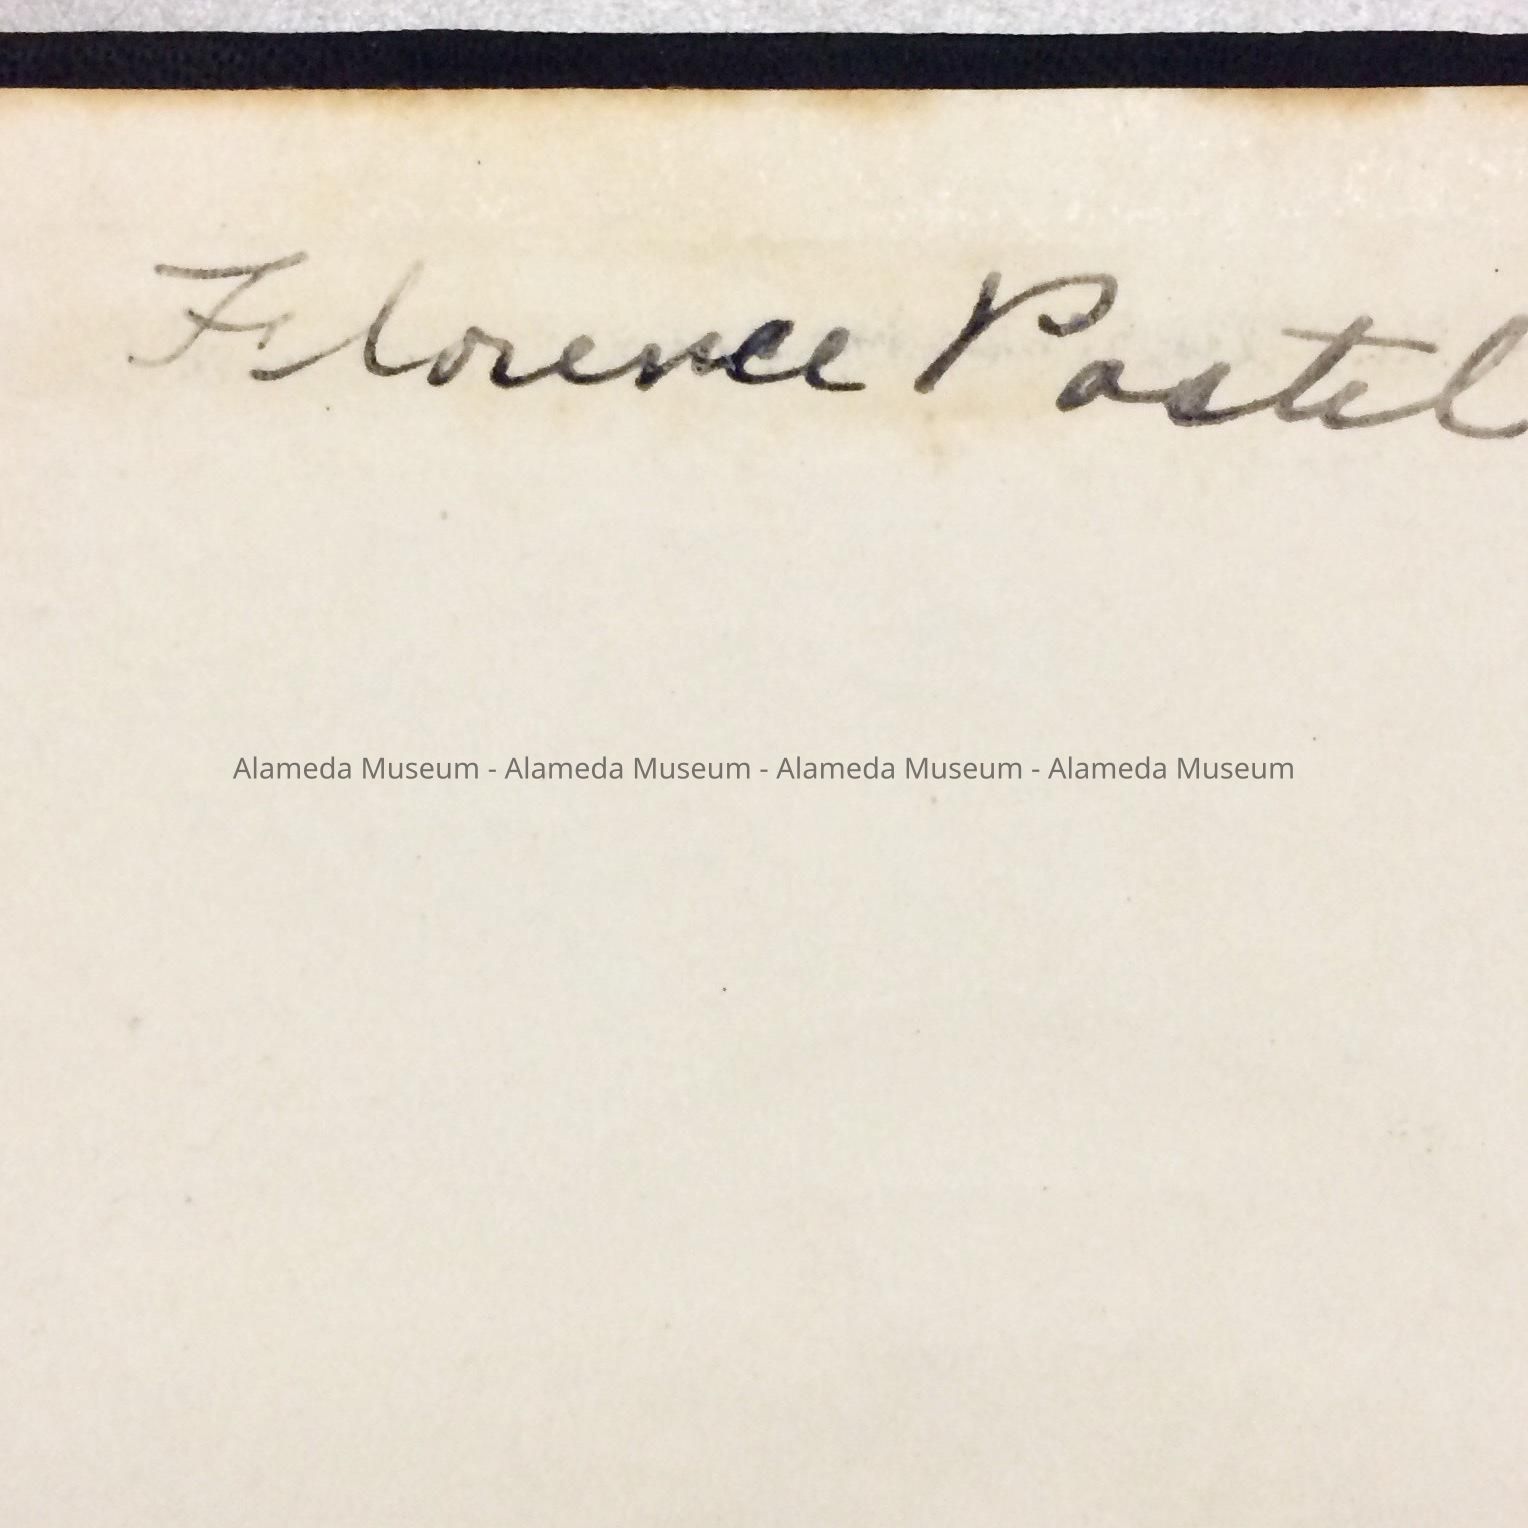 Florence Postel
Alameda Museum - Alameda Museum - Alameda Museum - Alameda Museum